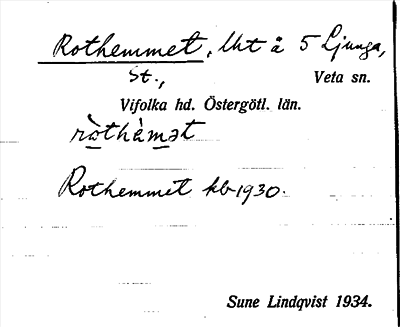 Rothemmet, lht å 5 Ljunga,
St., Veta sn.
Vifolka hd. Östergötl. län.
ròthèmət
Rothemmet kb 1930.
Sune Lindqvist 1934.